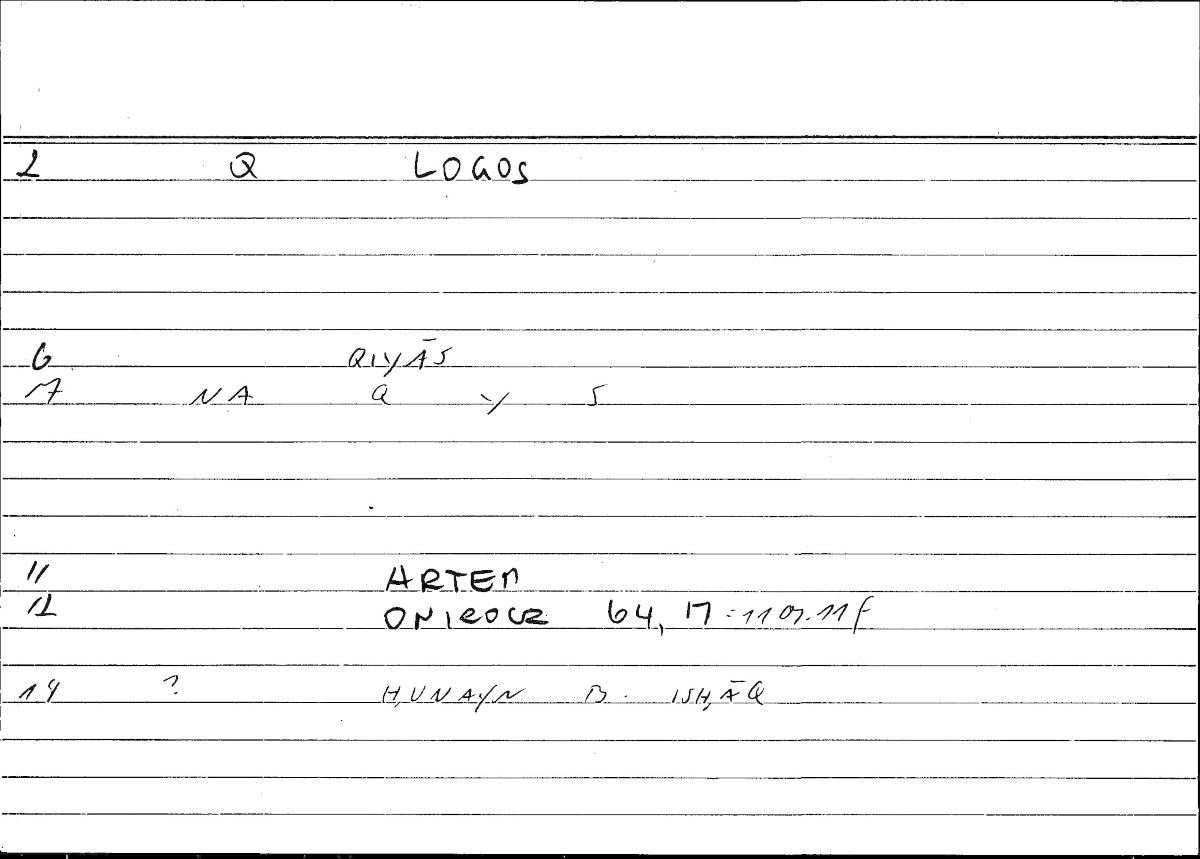 2 Q LOGOS
6 QIYĀS
7 NA Q Y S
11 ARTEM
12 ONIROCR 64, 17 = 11 f
14 ? ḤUNAYN B. ISḤĀQ